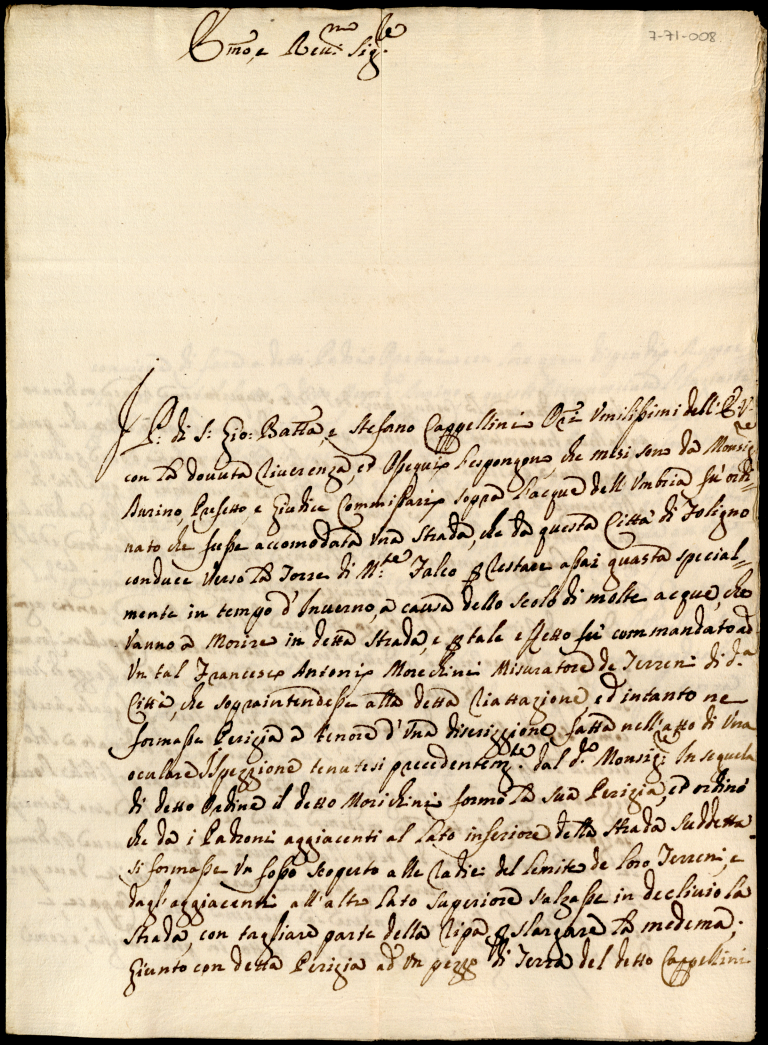 7-71-008
Emo, e Reumo Sigre
P. di S. Gio: Batta, e Stefano Cappellini Ori Vmilissimi dell' E. V.
con la douuta riuerenza, ed Ossequio l'espongono, che mesi sono da Monsigre
Burino, Prefetto e Giudice Commissario sopra l'acque dell' Vmbria fù ordi-
nato che fusse accomodata vna strada, che da questa Città di Foligno
conduce verso la Torre di M.te Falco p restare assai guasta special=
mente in tempo d'Inuerno, a causa dello scolo di molte acque, che
vanno a morire in detta strada, e p tale effetto fù commandato ad
vn tal Francesco Antonio Morechini Misuratore de Terreni di d.a
Città, che sopraintendesse alla detta riattazione, ed intanto ne
formasse Perizia a tenore d'vna discrizzione fatta nell'atto di vna
oculare Ispezzione tenutasi precedentemte dal d.o Monsigre In sequela
di detto ordine il detto Morichini formò la sua Perizia, ed ordinò
che da i Padroni aggiacenti al lato inferiore della strada suddetta
si formasse vn fosso scoperto alle radici del limite de loro Terreni, e
dagl'aggiacenti all'altro lato superiore s'alzasse in decliuio la
strada, con tagliare parte della ripa, p slargare la medema;
Giunto con detta Perizia ad vn pezzo di Terra del detto Cappellini